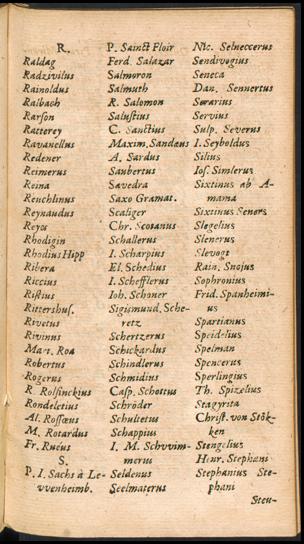 R.
Raldag
Radzivilus
Rainoldus
Ralbach
Rarson
Ratterey
Ravanellus
Redener
Reimerus
Reina
Reuchlinus
Reynaudus
Reyes
Rhodigin
Rhodius Hipp
Ribera
Riccius
Ristius
Rittershus.
Rivetus
Rivinus
Mart. Roa
Robertus
Rogerus
R. Rolfinckius
Rondeletius
Al. Rossæus
M. Rotardus
Fr. Rueus
S.
P. I. Sachs à Le-
vvenheimb.
P. Sainct Floir
Ferd. Salazar
Salmoron
Salmuth
R. Salomon
Salustius
C. Sanctius
Maxim. Sandæus
A. Sardus
Saubertus
Savedra
Saxo Gramat.
Scaliger
Chr. Scotanus
Schallerus
I. Scharpius
El. Schedius
I. Schefflerus
Ioh. Schoner
Sigismund. Sche-
retz
Schertzerus
Schickardus
Schindlerus
Schmidius
Casp. Schottus
Schröder
Schultetus
Schappius
I. M. Schvvim-
merus
Seldenus
Seelmaterus
Nic. Selneccerus
Sendivogius
Seneca
Dan. Sennertus
Serarius
Servius
Sulp. Severus
I. Seyboldus
Silius
Ios. Simlerus
Sixtinus ab A-
mama
Sixtinus Senens
Slegelius
Slenerus
Slevogt
Rain. Snojus
Sophronius
Frid. Spanheimi-
us
Spartianus
Speidelius
Spelman
Spencerus
Sperlingius
Th. Spizelius
Stagyrita
Christ. von Stök-
ken
Stengelius
Henr. Stephani
Stephanius Ste-
phani
Steu-